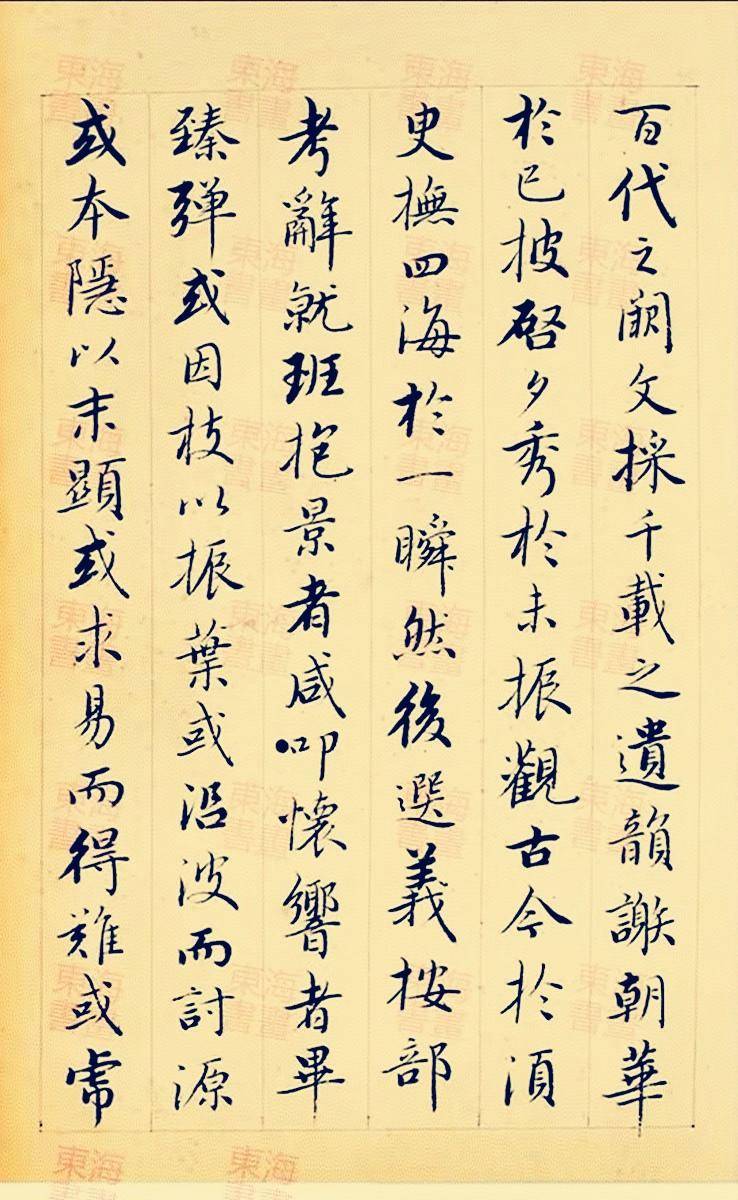 百代之闕文採千載之遺韻謝朝華
於已披啓夕秀於未振觀古今於須
臾撫四海於一瞬然後選義按部
考辭就班抱景者咸叩懷響者畢
臻彈或因枝以振葉或沿波而討源
或本隱以末顯或求易而得難或虎
東海
書畫